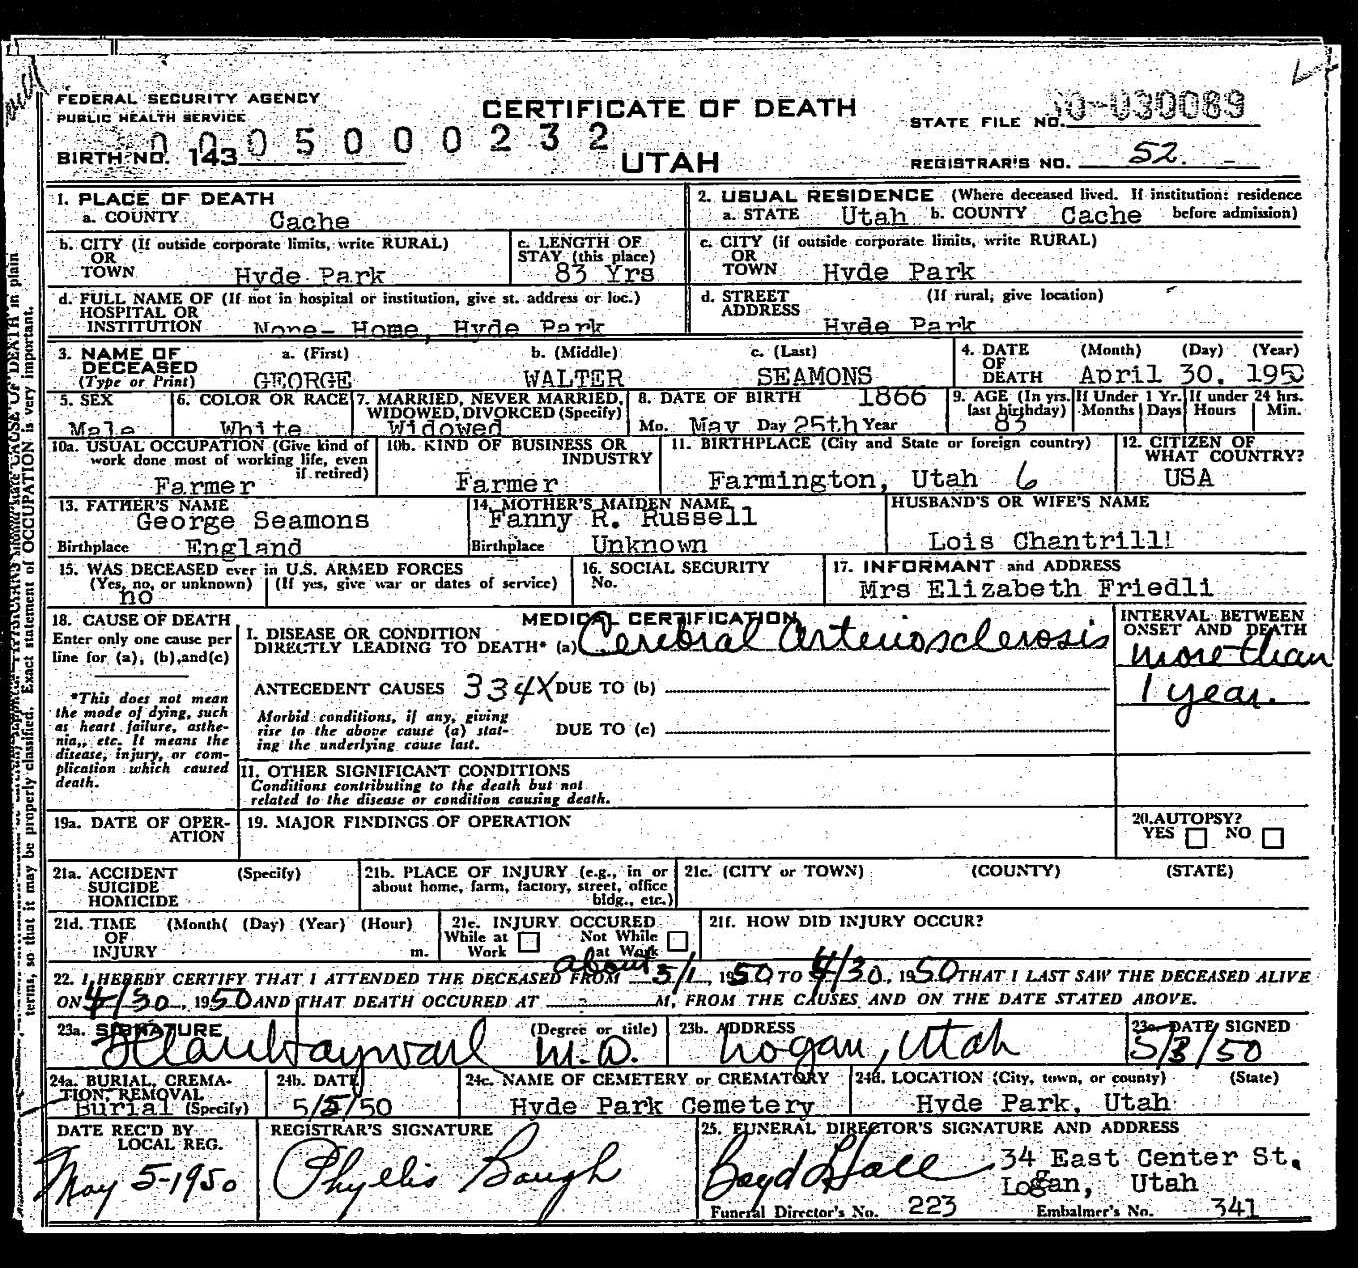 FEDERAL SECURITY AGENCY
PUBLIC HEALTH SERVICE
CERTIFICATE OF DEATH
UTAH
STATE FILE NO. 50-030089
BIRTH NO. 143
0005000232
REGISTRAR'S NO. 52.
1. PLACE OF DEATH
a. COUNTY Cache
2. USUAL RESIDENCE (Where deceased lived. If institution: residence before admission)
a. STATE Utah b. COUNTY Cache
b. CITY (If outside corporate limits, write RURAL)
OR
TOWN Hyde Park
c. LENGTH OF
STAY (this place)
83 Yrs
c. CITY (if outside corporate limits, write RURAL)
OR
TOWN Hyde Park
d. FULL NAME OF (If not in hospital or institution, give st. address or loc.)
HOSPITAL OR
INSTITUTION None- Home, Hyde Park
d. STREET (If rural, give location)
ADDRESS
Hyde Park
3. NAME OF
DECEASED
(Type or Print)
a. (First) b. (Middle) c. (Last)
GEORGE WALTER SEAMONS
4. DATE (Month) (Day) (Year)
OF
DEATH April 30. 1950
5. SEX
Male
6. COLOR OR RACE
White
7. MARRIED, NEVER MARRIED,
WIDOWED, DIVORCED (Specify)
Widowed
8. DATE OF BIRTH 1866
Mo. May Day 25th Year
9. AGE (In yrs.
last birthday)
83
If Under 1 Yr.
Months Days
If under 24 hrs.
Hours Min.
10a. USUAL OCCUPATION (Give kind of
work done most of working life, even
if retired)
Farmer
10b. KIND OF BUSINESS OR
INDUSTRY
Farmer
11. BIRTHPLACE (City and State or foreign country)
Farmington, Utah 6
12. CITIZEN OF
WHAT COUNTRY?
USA
13. FATHER'S NAME
George Seamons
Birthplace England
14. MOTHER'S MAIDEN NAME
Fanny R. Russell
Birthplace Unknown
HUSBAND'S OR WIFE'S NAME
Lois Chantrill
15. WAS DECEASED ever in U.S. ARMED FORCES
(Yes, no, or unknown) (If yes, give war or dates of service)
no
16. SOCIAL SECURITY
No.
17. INFORMANT and ADDRESS
Mrs Elizabeth Friedli
18. CAUSE OF DEATH
Enter only one cause per
line for (a), (b), and (c)
*This does not mean
the mode of dying, such
as heart failure, asthe-
nia,, etc. It means the
disease, injury, or com-
plication which caused
death.
MEDICAL CERTIFICATION
I. DISEASE OR CONDITION
DIRECTLY LEADING TO DEATH* (a) Cerebral Arteriosclerosis
INTERVAL BETWEEN
ONSET AND DEATH
more than
1 year.
ANTECEDENT CAUSES 334X DUE TO (b)
Morbid conditions, if any, giving
rise to the above cause (a) stat-
ing the underlying cause last.
DUE TO (c)
II. OTHER SIGNIFICANT CONDITIONS
Conditions contributing to the death but not
related to the disease or condition causing death.
19a. DATE OF OPER-
ATION
19. MAJOR FINDINGS OF OPERATION
20. AUTOPSY?
YES NO
21a. ACCIDENT (Specify)
SUICIDE
HOMICIDE
21b. PLACE OF INJURY (e.g., in or
about home, farm, factory, street, office
bldg., etc.)
21c. (CITY or TOWN) (COUNTY) (STATE)
21d. TIME (Month( (Day) (Year) (Hour)
OF
INJURY m.
21e. INJURY OCCURED
While at Work Not While at Work
21f. HOW DID INJURY OCCUR?
22. I HEREBY CERTIFY THAT I ATTENDED THE DECEASED FROM about 5/1, 1950 TO 4/30, 1950 THAT I LAST SAW THE DECEASED ALIVE
ON 4/30, 1950 AND THAT DEATH OCCURED AT M, FROM THE CAUSES AND ON THE DATE STATED ABOVE.
23a. SIGNATURE (Degree or title)
Hayward M.D.
23b. ADDRESS
Logan, Utah
23c. DATE SIGNED
5/3/50
24a. BURIAL, CREMA-
TION, REMOVAL
Burial (Specify)
24b. DATE
5/5/50
24c. NAME OF CEMETERY or CREMATORY
Hyde Park Cemetery
24d. LOCATION (City, town, or county) (State)
Hyde Park, Utah
DATE REC'D BY
LOCAL REG.
May 5-1950
REGISTRAR'S SIGNATURE
Phyllis Baugh
25. FUNERAL DIRECTOR'S SIGNATURE AND ADDRESS
Boyd Hall
34 East Center St.
Logan, Utah
Funeral Director's No. 223 Embalmer's No. 341
terms, so that it may be properly classified. Exact statement of OCCUPATION is very important.
CAUSE OF DEATH in plain